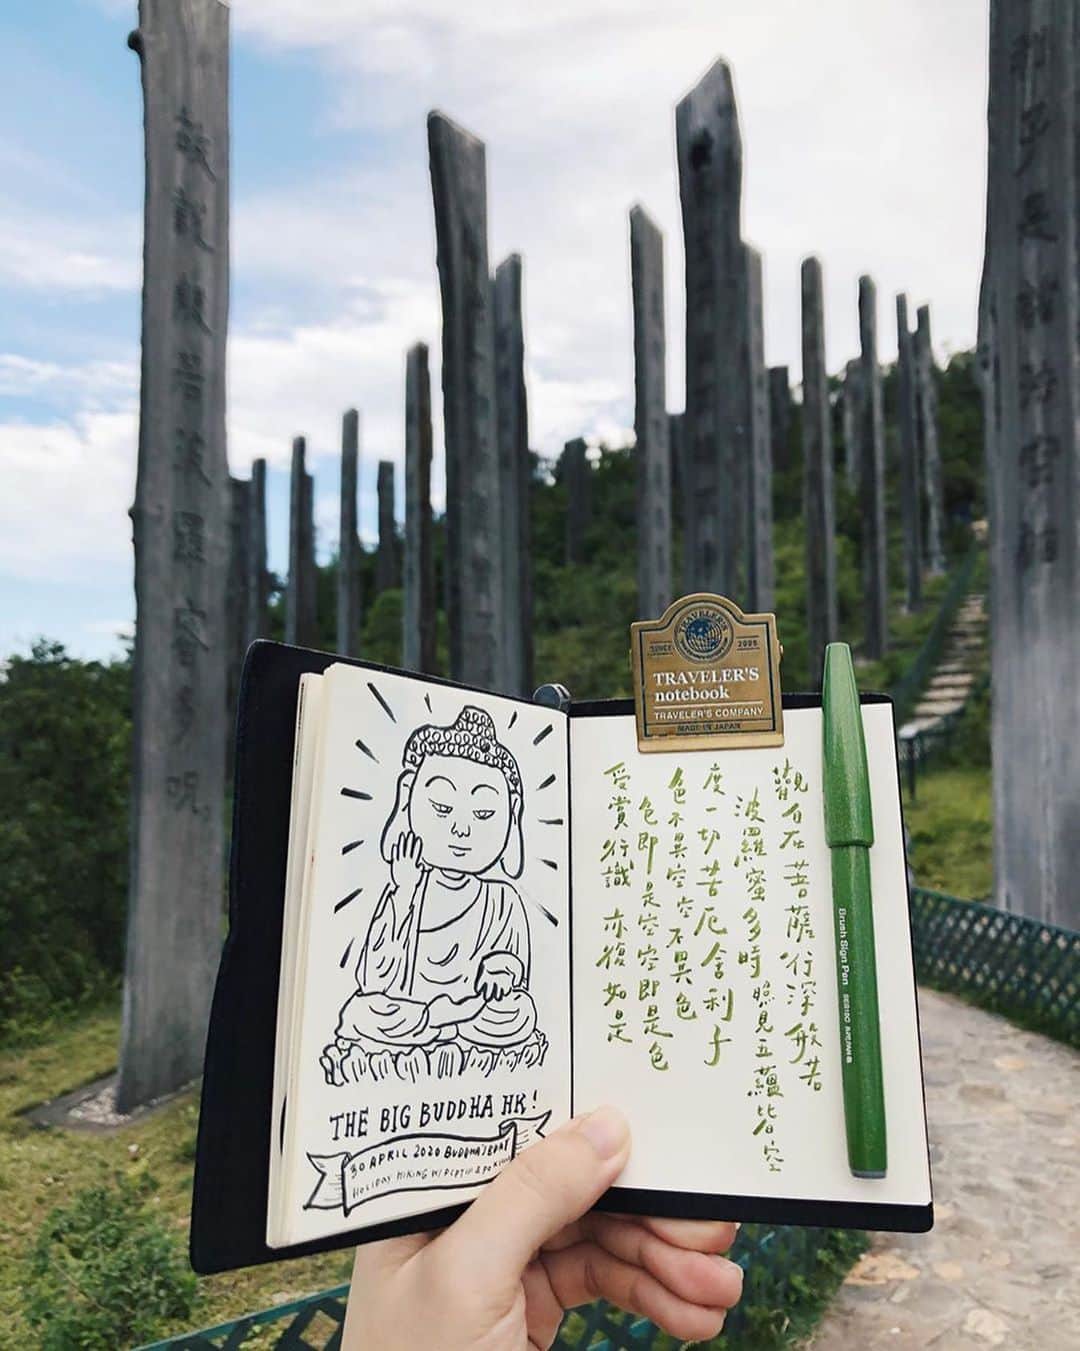 故說般若波羅密多呪
利子是諸法空相
TRAVELER'S
SINCE 2006
TRAVELER'S
notebook
TRAVELER'S COMPANY
MADE IN JAPAN
THE BIG BUDDHA HK!
30 APRIL 2020 BUDDHA'S B'DAY
HOLIDAY HIKING W/
觀自在菩薩行深般若
波羅蜜多時照見五蘊皆空
度一切苦厄舍利子
色不異空空不異色
色即是空空即是色
受賞行識亦復如是
Brush Sign Pen SES15C